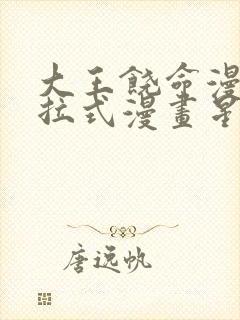 大王饶命漫
拉式漫畫星
唐远帆